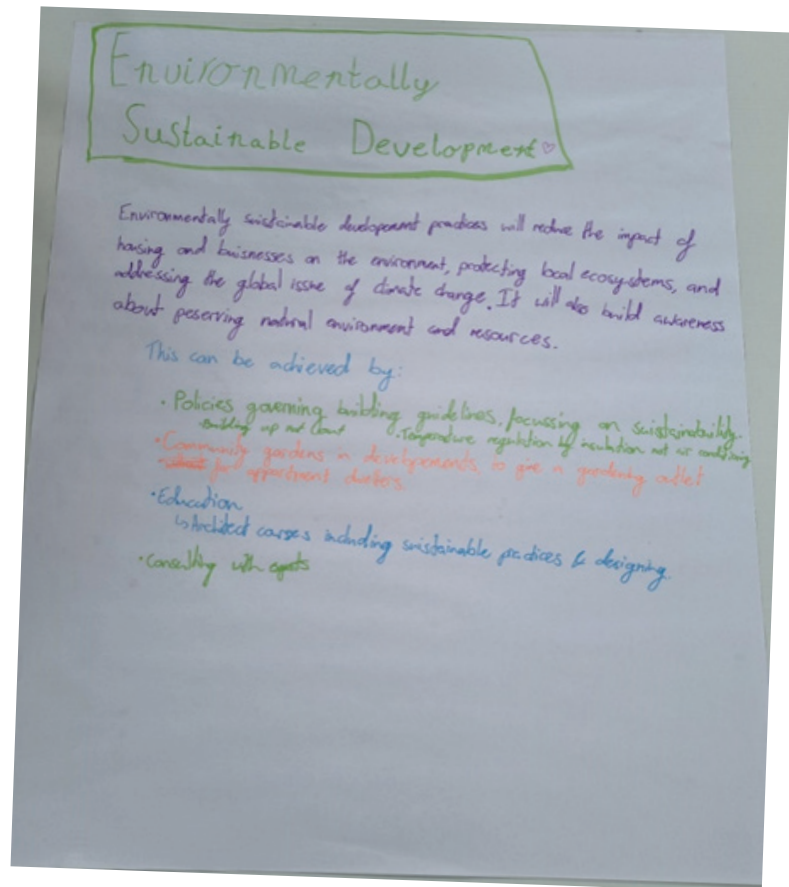 Environmentally
Sustainable Development♡
Environmentally suistainable development practices will reduce the impact of
housing and buisnesses on the environment, protecting local ecosystems, and
addressing the global issue of climate change. It will also build awareness
about peserving natural environment and resources.
This can be achieved by:
• Policies governing building guidelines, focussing on suistainability.
• Building up not out • Temperature regulation by insulation not air conditioning
• Community gardens in developements, to give a gardening outlet
for appartment dwellers
• Education
↳ Architect courses including suistainable practices & designing.
• Consulting with experts